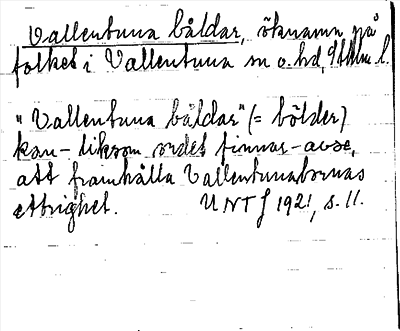 Vallentuna båldar, öknamn på
folket i Vallentuna sn o. hd, Sthlm l.
"Vallentuna båldar" (= bölder)
kan - liksom ordet finnar - avse,
att framhålla Vallentunabornas
ettrighet. UNTf 1921, s. 11.